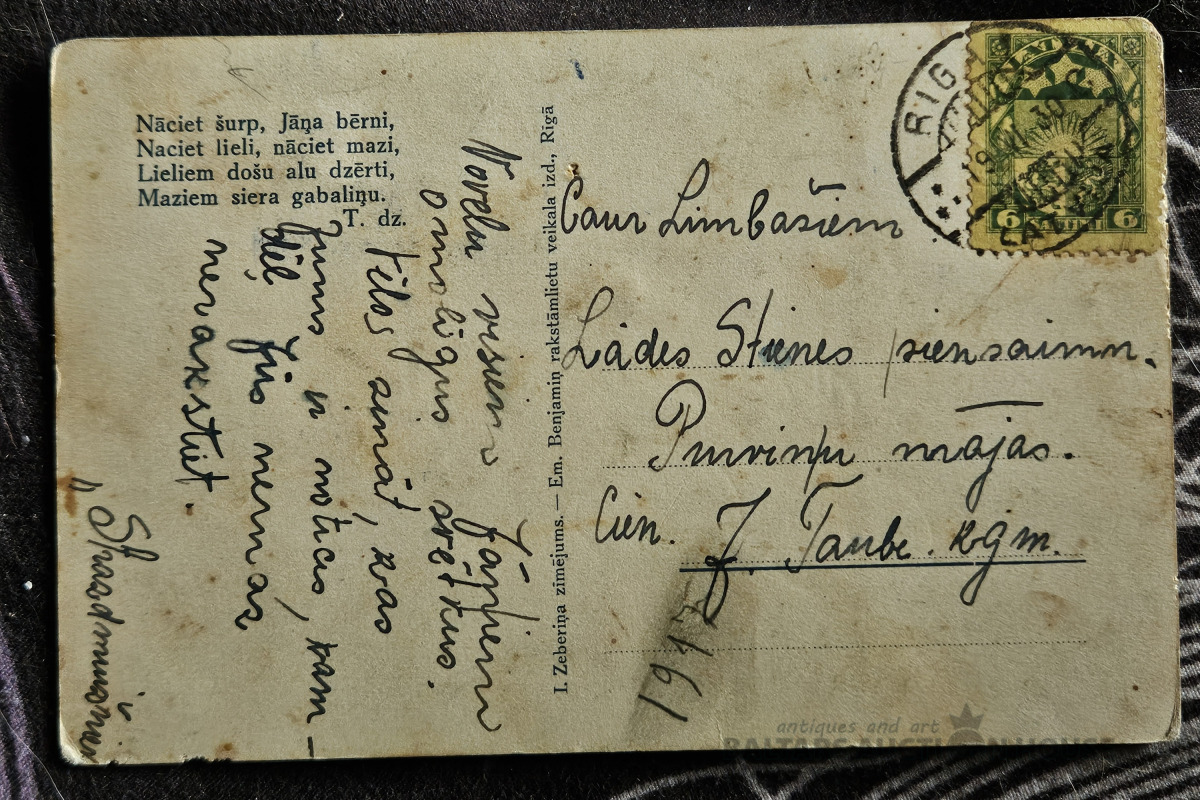 Nāciet šurp, Jāņa bērni,
Naciet lieli, nāciet mazi,
Lieliem došu alu dzērti,
Maziem siera gabaliņu.
T. dz.
Novelu visiem Jāņiem
omulīgus svētkus.
Vēlos zināt, kas
Jums ir noticis, kam-
dēļ Jūs nemaz
nerakstiet.
I. Zeberiņa zīmējums. — Em. Benjamiņ rakstāmlietu veikala izd., Rīgā
Caur Limbašiem
Lādes Stienes viensaimn.
Purviņu mājās.
Cien. J. Taube. kgm.
1917
RIGA
LATVIJA
6 6
antiques and art
BALTARS AUCTION HOUSE